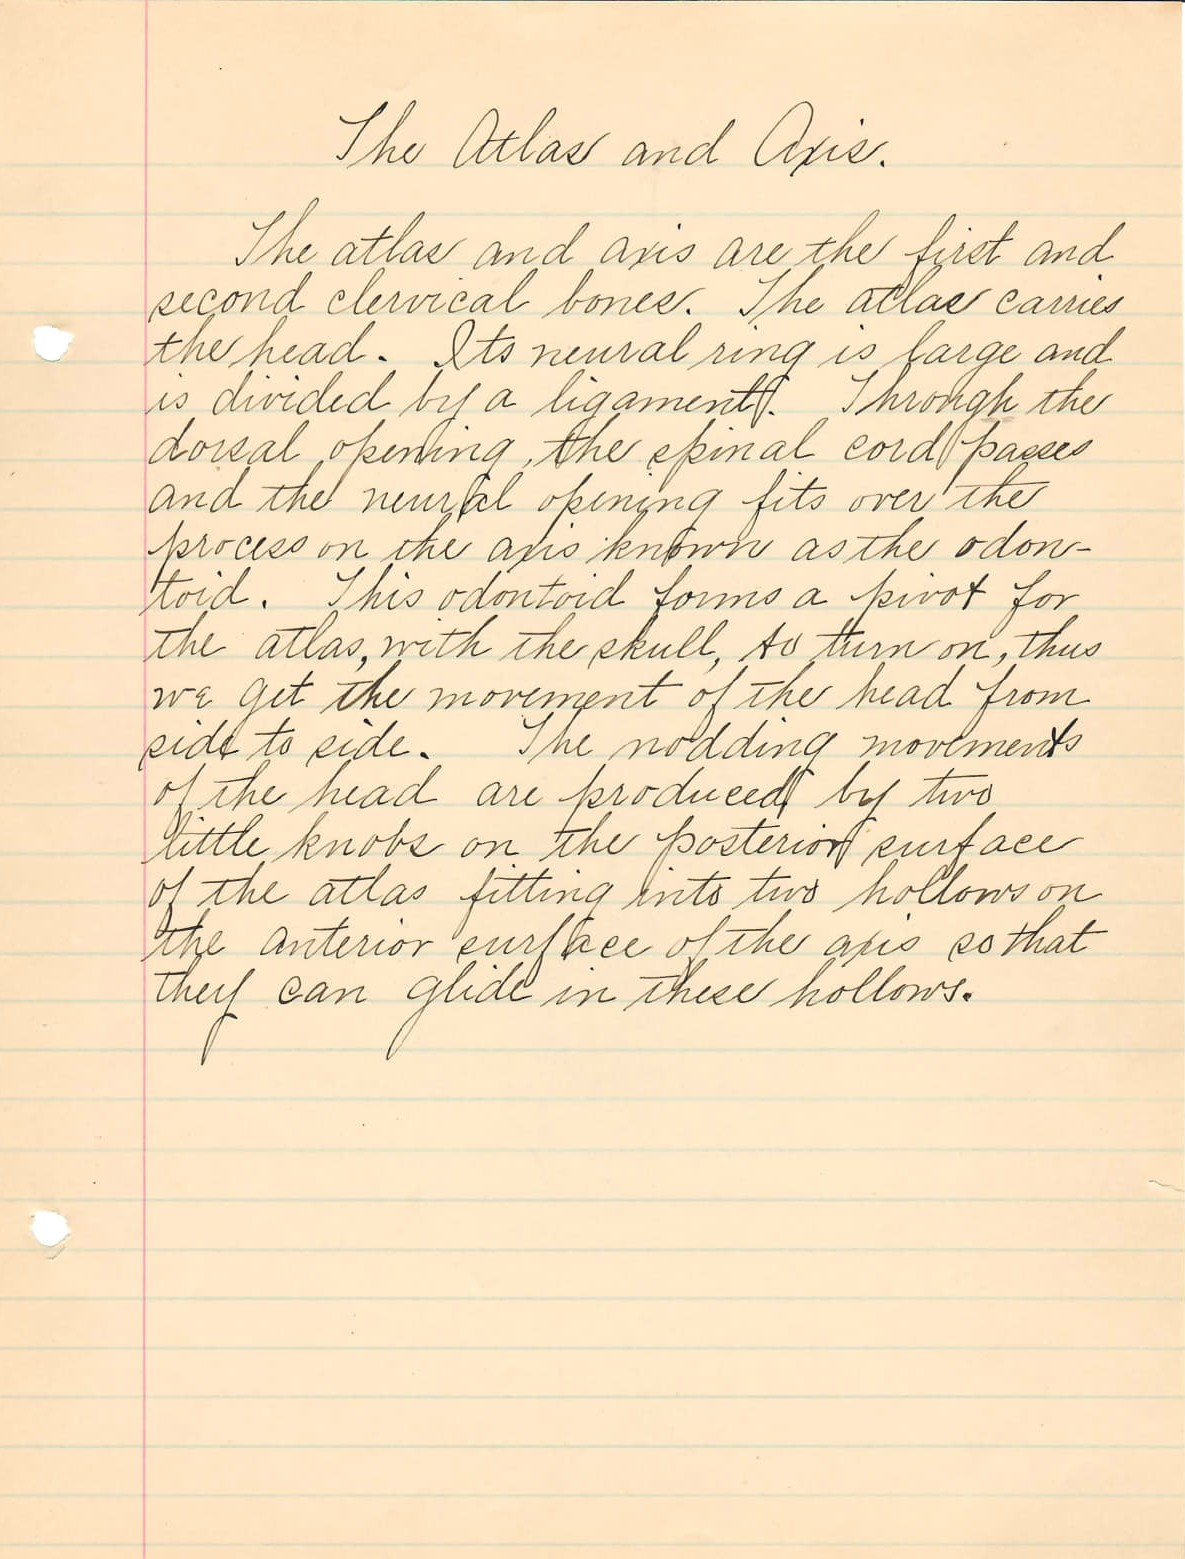 The Atlas and Axis.
The atlas and axis are the first and
second clervical bones. The atlas carries
the head. Its neural ring is large and
is divided by a ligament. Through the
dorsal opening, the spinal cord passes
and the neural opening fits over the
process on the axis known as the odon-
toid. This odontoid forms a pivot for
the atlas, with the skull, to turn on, thus
we get the movement of the head from
side to side. The nodding movements
of the head are produced by two
little knobs on the posterior surface
of the atlas fitting into two hollows on
the anterior surface of the axis so that
they can glide in these hollows.